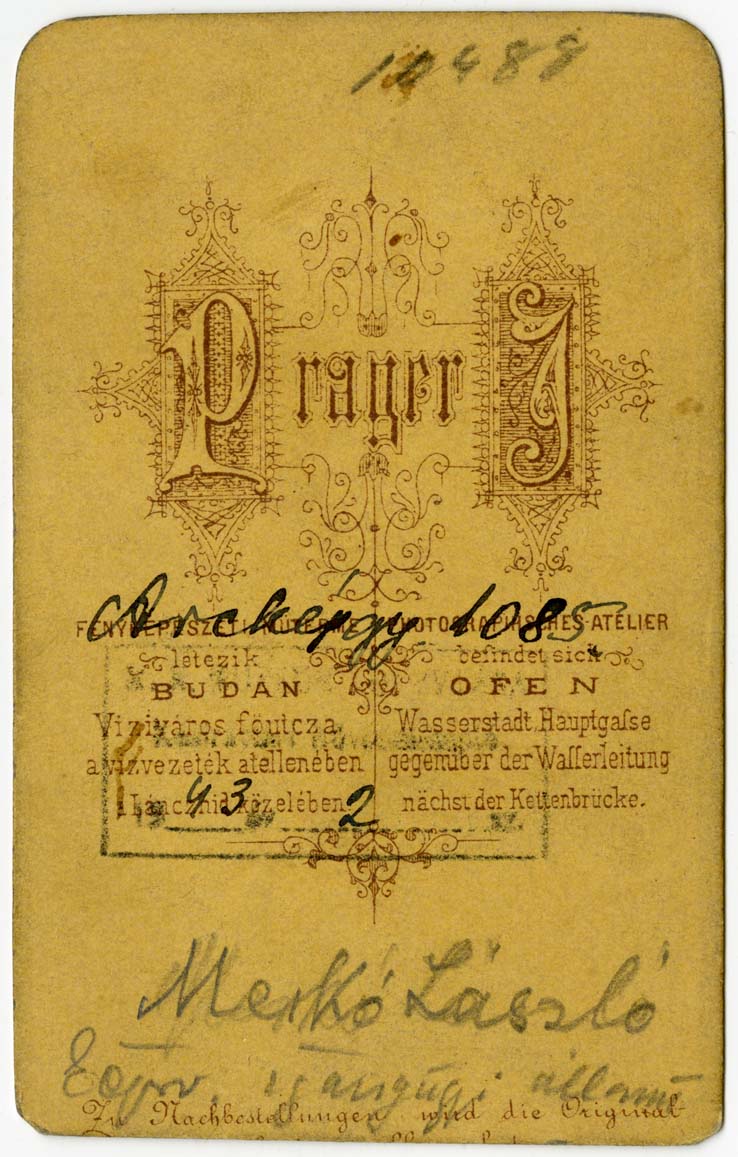 10488
Prager J
Arcképgy 1085
FÉNYKÉPÉSZETI MŰTERME PHOTOGRAPHISCHES ATELIER
létezik befindet sich
BUDÁN OFEN
Viziváros föutcza Wasserstadt, Hauptgasse
a vizvezeték atellenében gegenüber der Wasserleitung
Lánczhid közelében nächst der Kettenbrücke.
43 2
Merkó László
igazügyi
Zu Nachbestellungen wird die Original